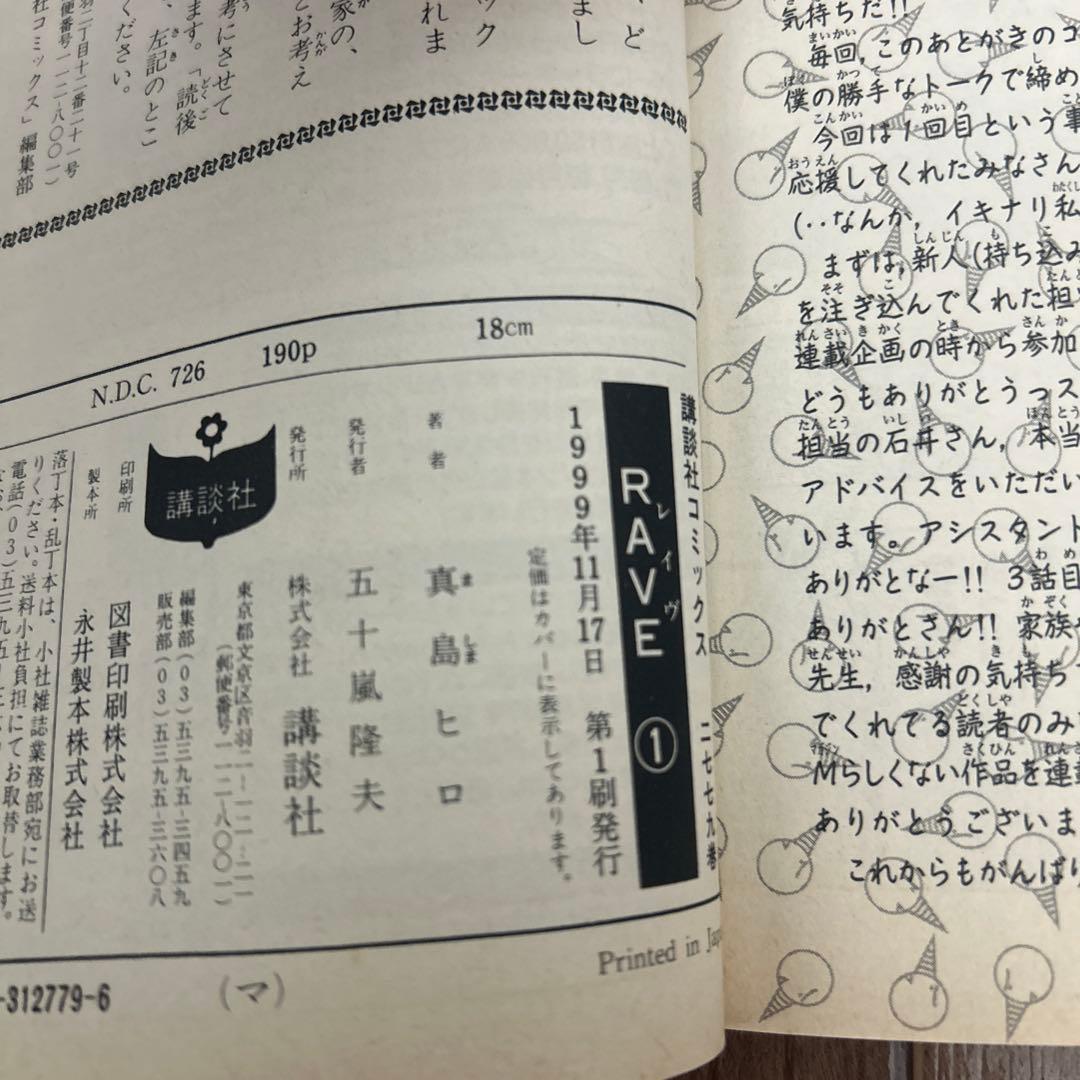 気持ちだ!!
毎回,このあとがきのコ
僕の勝手なトークで締め
今回は1回目という事
応援してくれたみなさん
(‥なんか,イキナリ私
まずは,新人(持ち込み
を注ぎ込んでくれた担
連載企画の時から参加
どうもありがとうっス
担当の石井さん,本当
アドバイスをいただい
います。アシスタント
ありがとなー!! 3話目
ありがとさん!! 家族や
先生,感謝の気持ち
でくれてる読者のみ
Mらしくない作品を連載
ありがとうございま
これからもがんばり
ど
まし
ック
れま
家の、
とお考え
考にさせて
ます。「読後
、左記のとこ
ください。
羽二丁目十二番二十一号
便番号一一二-八〇〇一)
社コミックス」編集部
N.D.C. 726 190p 18cm
講談社コミックス 二七七九巻
RAVE ①
レイヴ
1999年11月17日 第1刷発行
定価はカバーに表示してあります。
著者 真島ヒロ
ま しま
発行者 五十嵐隆夫
発行所 株式会社 講談社
東京都文京区音羽二-一二-二一
(郵便番号一一二-八〇〇一)
編集部(03)五三九五-三四五九
販売部(03)五三九五-三六〇八
講談社
印刷所 図書印刷株式会社
製本所 永井製本株式会社
落丁本・乱丁本は、小社雑誌業務部宛にお送
りください。送料小社負担にてお取替します。
電話(03)五三九五-三六
Printed in Japa
-312779-6 (マ)